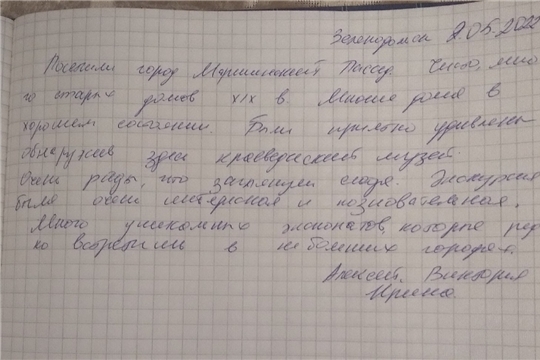 Зеленодольск 2.05.2022
Посетили город Мариинский Посад. Чисто, мно
го старых домов XIX в. Многие дома в
хорошем состоянии. Были приятно удивлены
обнаружив здесь краеведческий музей.
Очень рады, что заглянули сюда. Экскурсия
была очень интересная и познавательная.
Много уникальных экспонатов, которые ред
ко встретишь в небольших городах.
Алексей, Виктория
Ирина.